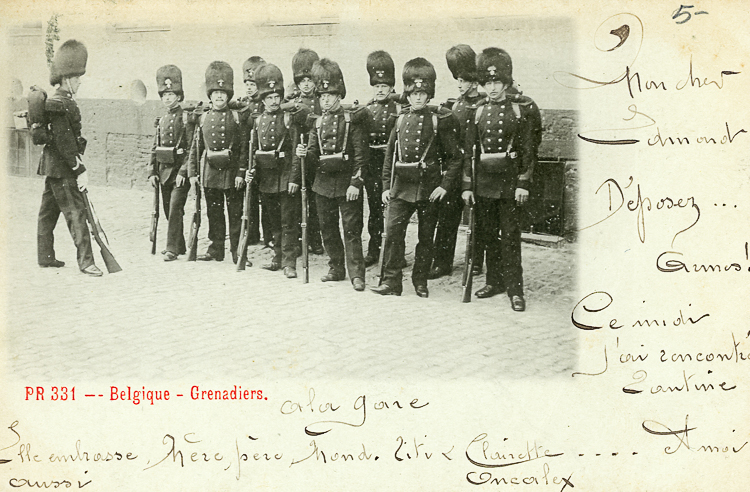 5-
Mon cher
Edmond
Déposez ...
Armes!
Ce midi
j'ai rencontré
Tantine
PR 331 -- Belgique - Grenadiers.
a la gare
Elle embrasse, Mère, père, Mond. Titi & Clairette .... A moi
aussi